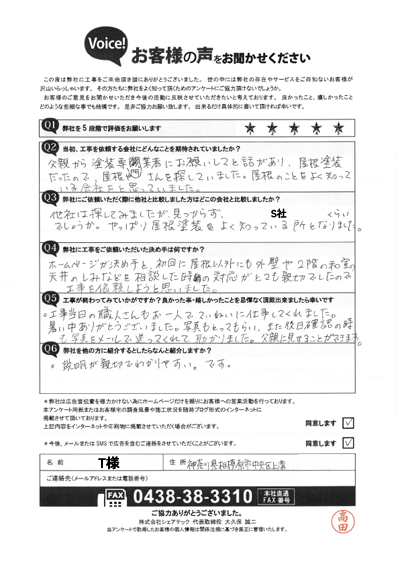 Voice!
お客様の声をお聞かせください
この度は弊社に工事をご用命頂き誠にありがとうございました。世の中には弊社の存在やサービスをご存知ないお客様が
沢山いらっしゃいます。その方たちに弊社をよく知って頂くためのアンケートにご協力頂けないでしょうか。
お客様のご意見をお聞かせいただき今後の活動に反映させていただきたいと考えております。良かったこと、嬉しかったこと
どのような些細な事でも結構です。是非ご協力お願い致します。出来るだけ具体的に書いて頂ければ幸いです。
Q1 弊社を5段階で評価をお願いします ★ ★ ★ ★ ★
Q2 当初、工事を依頼する会社にどんなことを期待されていましたか?
父親から塗装専門業者にお願いしてと話があり、屋根塗装
だったので、屋根専門さんを探していました。屋根のことをよく知って
いる会社をと思っていました。
Q3 弊社にご依頼いただく際に他社と比較しました方はどこの会社と比較しましたか?
他社は探してみましたが、見つからず、S社くらい
でしょうか。やっぱり屋根塗装をよく知っている所となりました。
Q4 弊社に工事をご依頼いただいた決め手は何ですか?
ホームページが決め手と、初回に屋根以外にも外壁や2階の和室の
天井のしみなどを相談した時の対応がとても親切でしたので
工事を依頼しようと思いました。
Q5 工事が終わってみていかがですか?良かった事・嬉しかったことを忌憚なく頂戴出来ましたら幸いです
○工事当日の職人さんもお一人でていねいに仕事してくれました。
暑い中ありがとうございました。写真もとってもらい、また後日確認の時
も写真をメールで送ってくれて助かりました。父親に見せることができます。
Q6 弊社を他の方に紹介するとしたらなんと紹介しますか?
○説明が親切でわかりやすい。です。
※弊社は広告宣伝費を極力かけない為にホームページだけを頼りにお客様への営業活動を行っております。
本アンケート用紙またはお客様宅の調査風景や施工状況を随時ブログ形式のインターネットに
掲載させて頂いております。
上記内容をインターネットや印刷物に掲載させていただく場合がございます。 同意します ☑
※今後、メールまたはSMSで広告を含むご連絡をさせていただくことがございます。 同意します ☑
名前 T様 住所 神奈川県相模原市中央区上溝
ご連絡先(メールアドレスまたは電話番号)
FAX 0438-38-3310 本社直通 FAX番号
ご協力ありがとうございました。
株式会社シェアテック 代表取締役 大久保 誠二
当アンケートで取得したお客様の個人情報は関係法規に基づき厳正に管理いたします。
高田